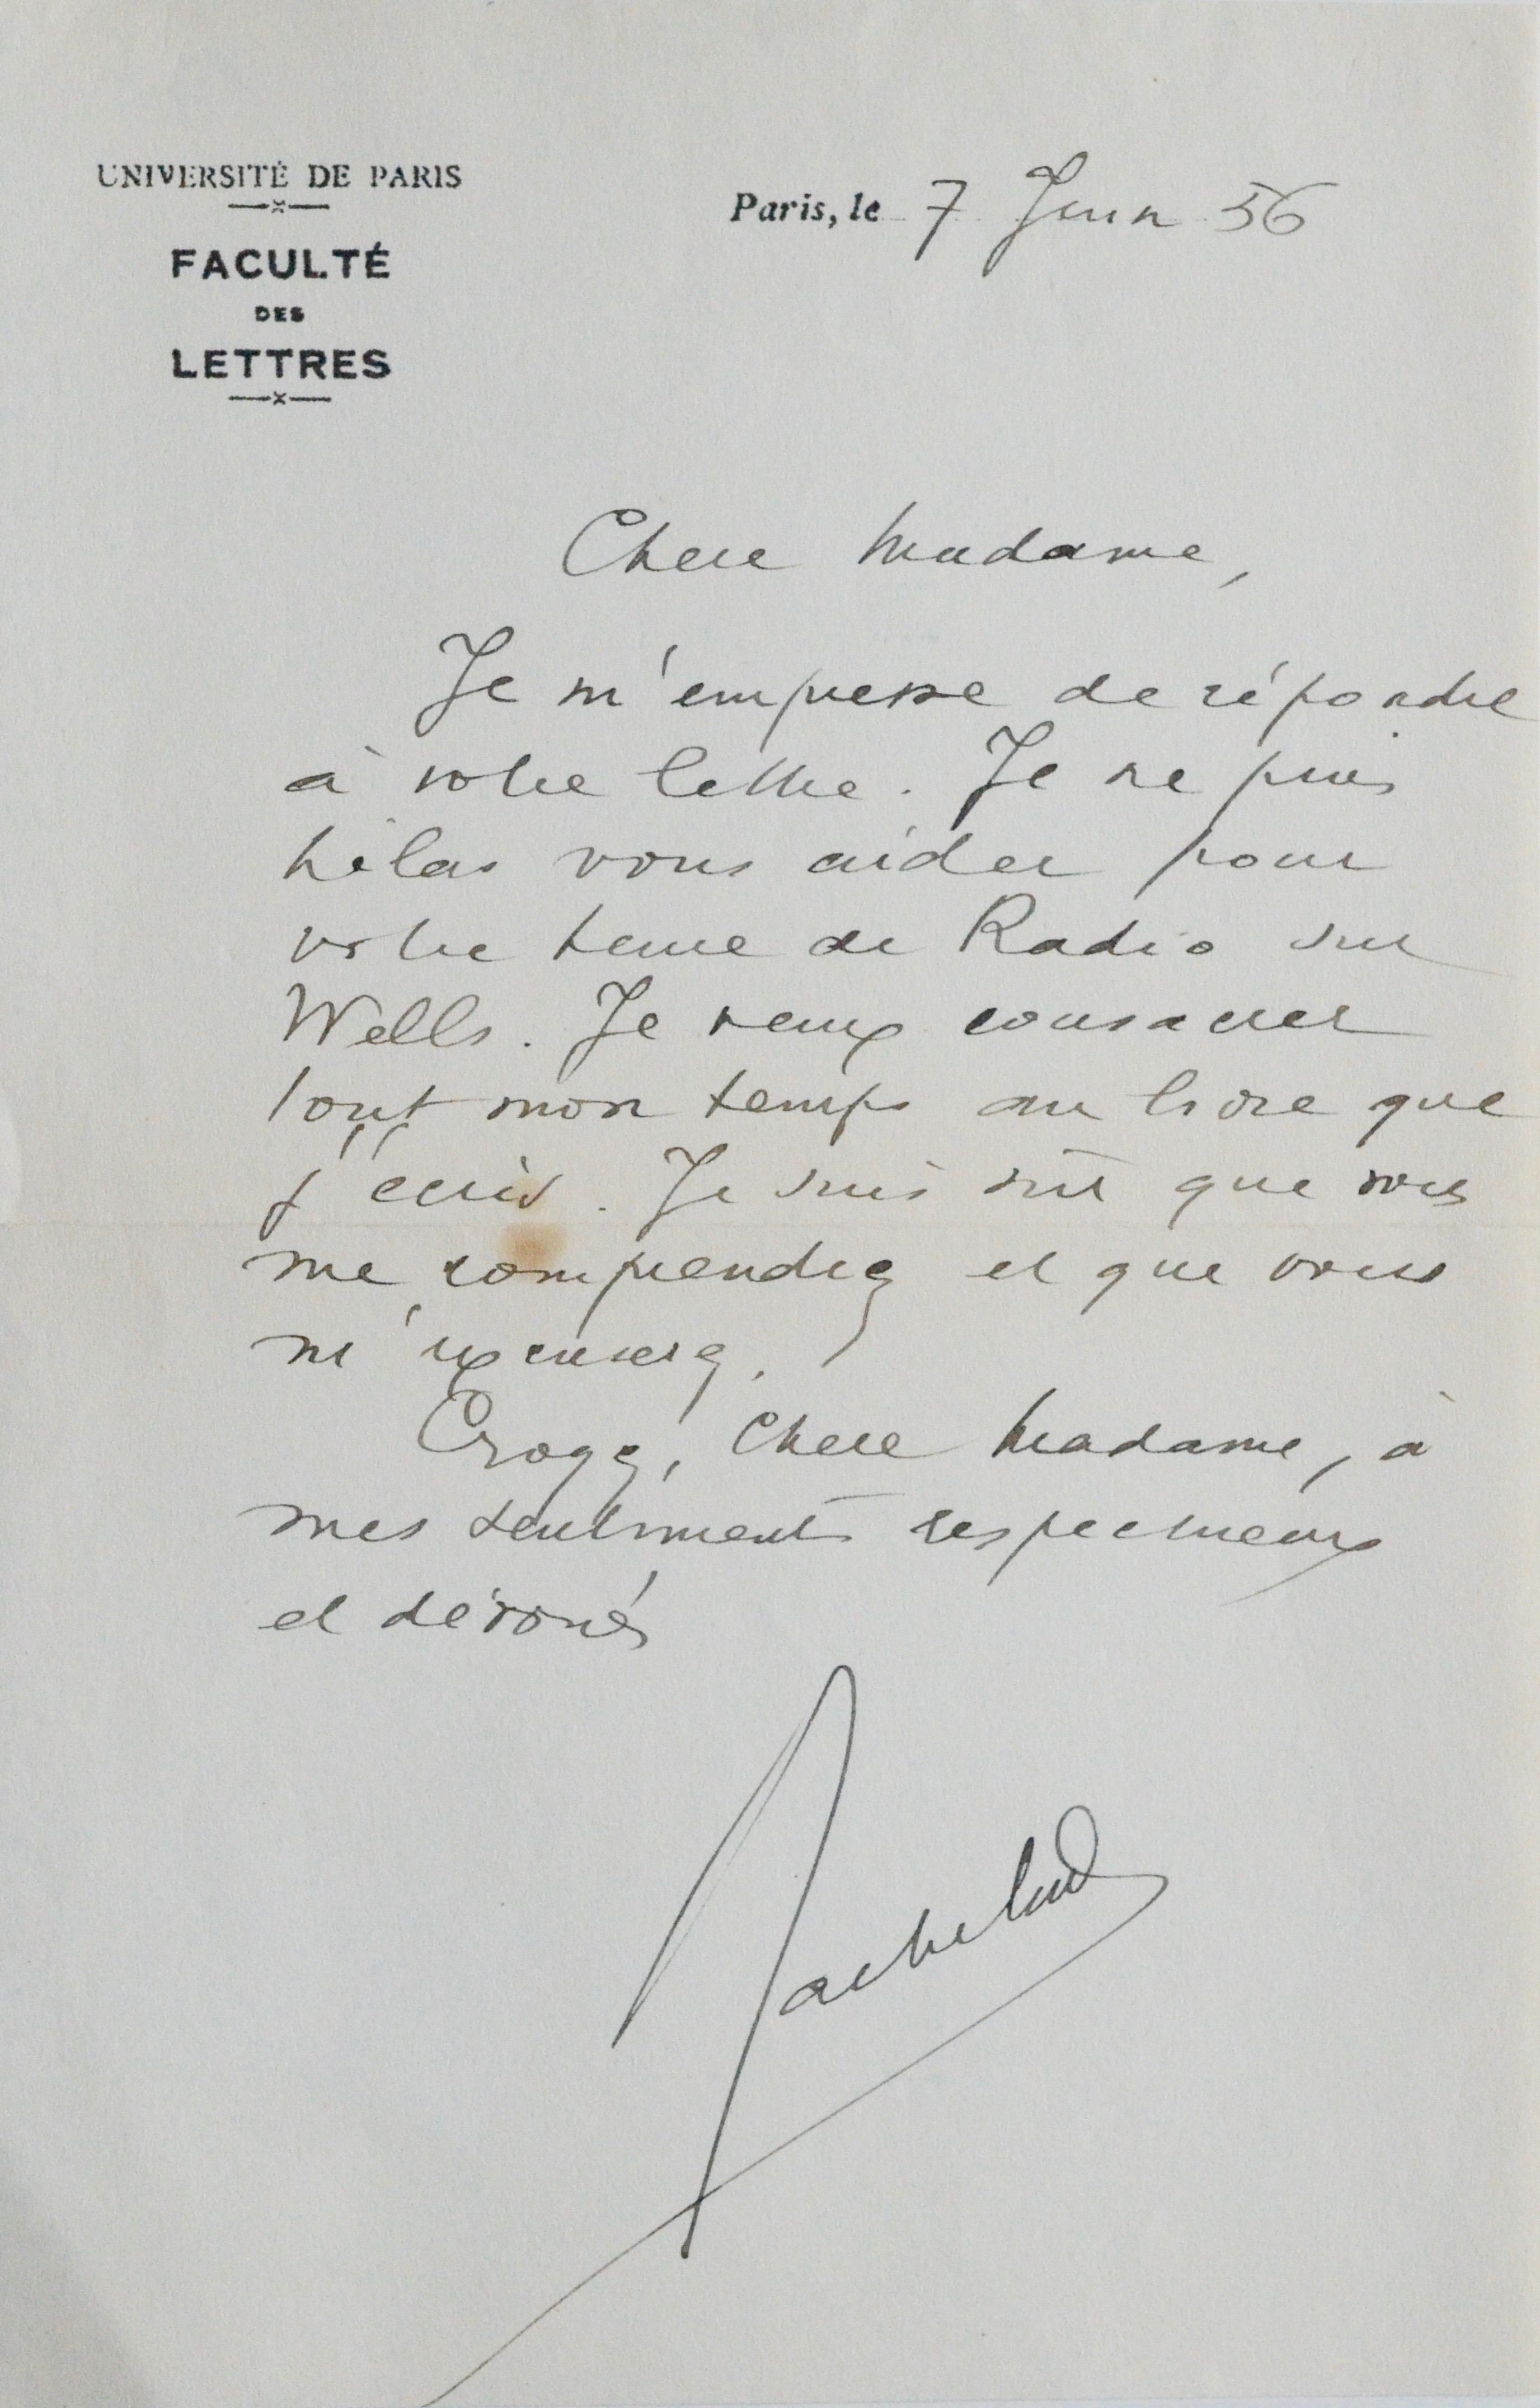 UNIVERSITÉ DE PARIS
FACULTÉ
DES
LETTRES
Paris, le 7 Juin 56
Chere Madame,
Je m'empresse de répondre
à votre lettre. Je ne puis
hélas vous aider pour
votre heure de Radio sur
Wells. Je veux consacrer
tout mon temps au livre que
j'écris. Je suis sûr que vous
me comprendrez et que vous
m'excuserez.
Croyez, Chere Madame, à
mes sentiments respectueux
et dévoués
Bachelard